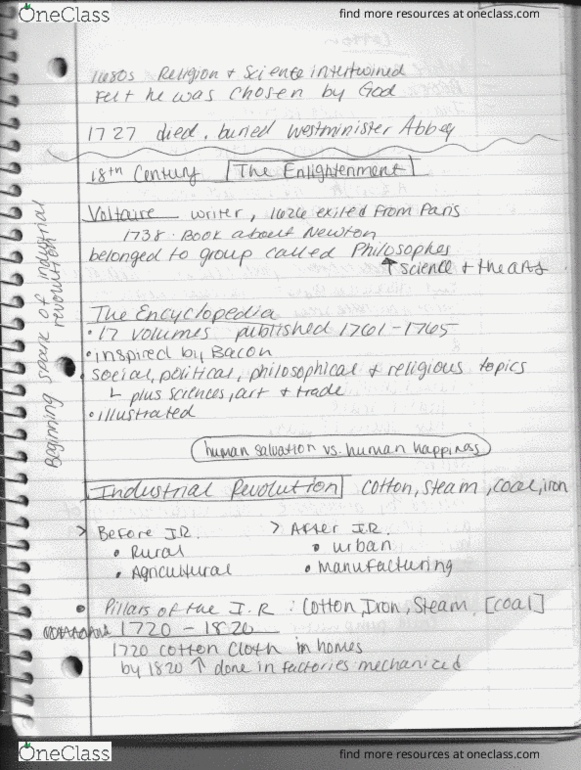 OneClass find more resources at oneclass.com
1680s Religion + Science intertwined
Felt he was chosen by God
1727 died, buried Westminister Abbey
18th Century The Enlightenment
Voltaire writer, 1626 exited from Paris
1738. Book about Newton
belonged to group called Philosophes
↑ science + the arts
Beginning spark of industrial revolution
The Encyclopedia
• 17 volumes published 1761-1765
• inspired by Bacon
• social, political, philosophical + religious topics
↳ plus sciences, art + trade
• illustrated
human salvation vs. human happiness
Industrial Revolution cotton, steam, coal, iron
> Before I.R. > After I.R.
• Rural • urban
• Agricultural • manufacturing
• Pillars of the I.R : Cotton, Iron, Steam, [coal]
1720 - 1820
1720 cotton cloth in homes
by 1820 ↑ done in factories mechanized
OneClass find more resources at oneclass.com